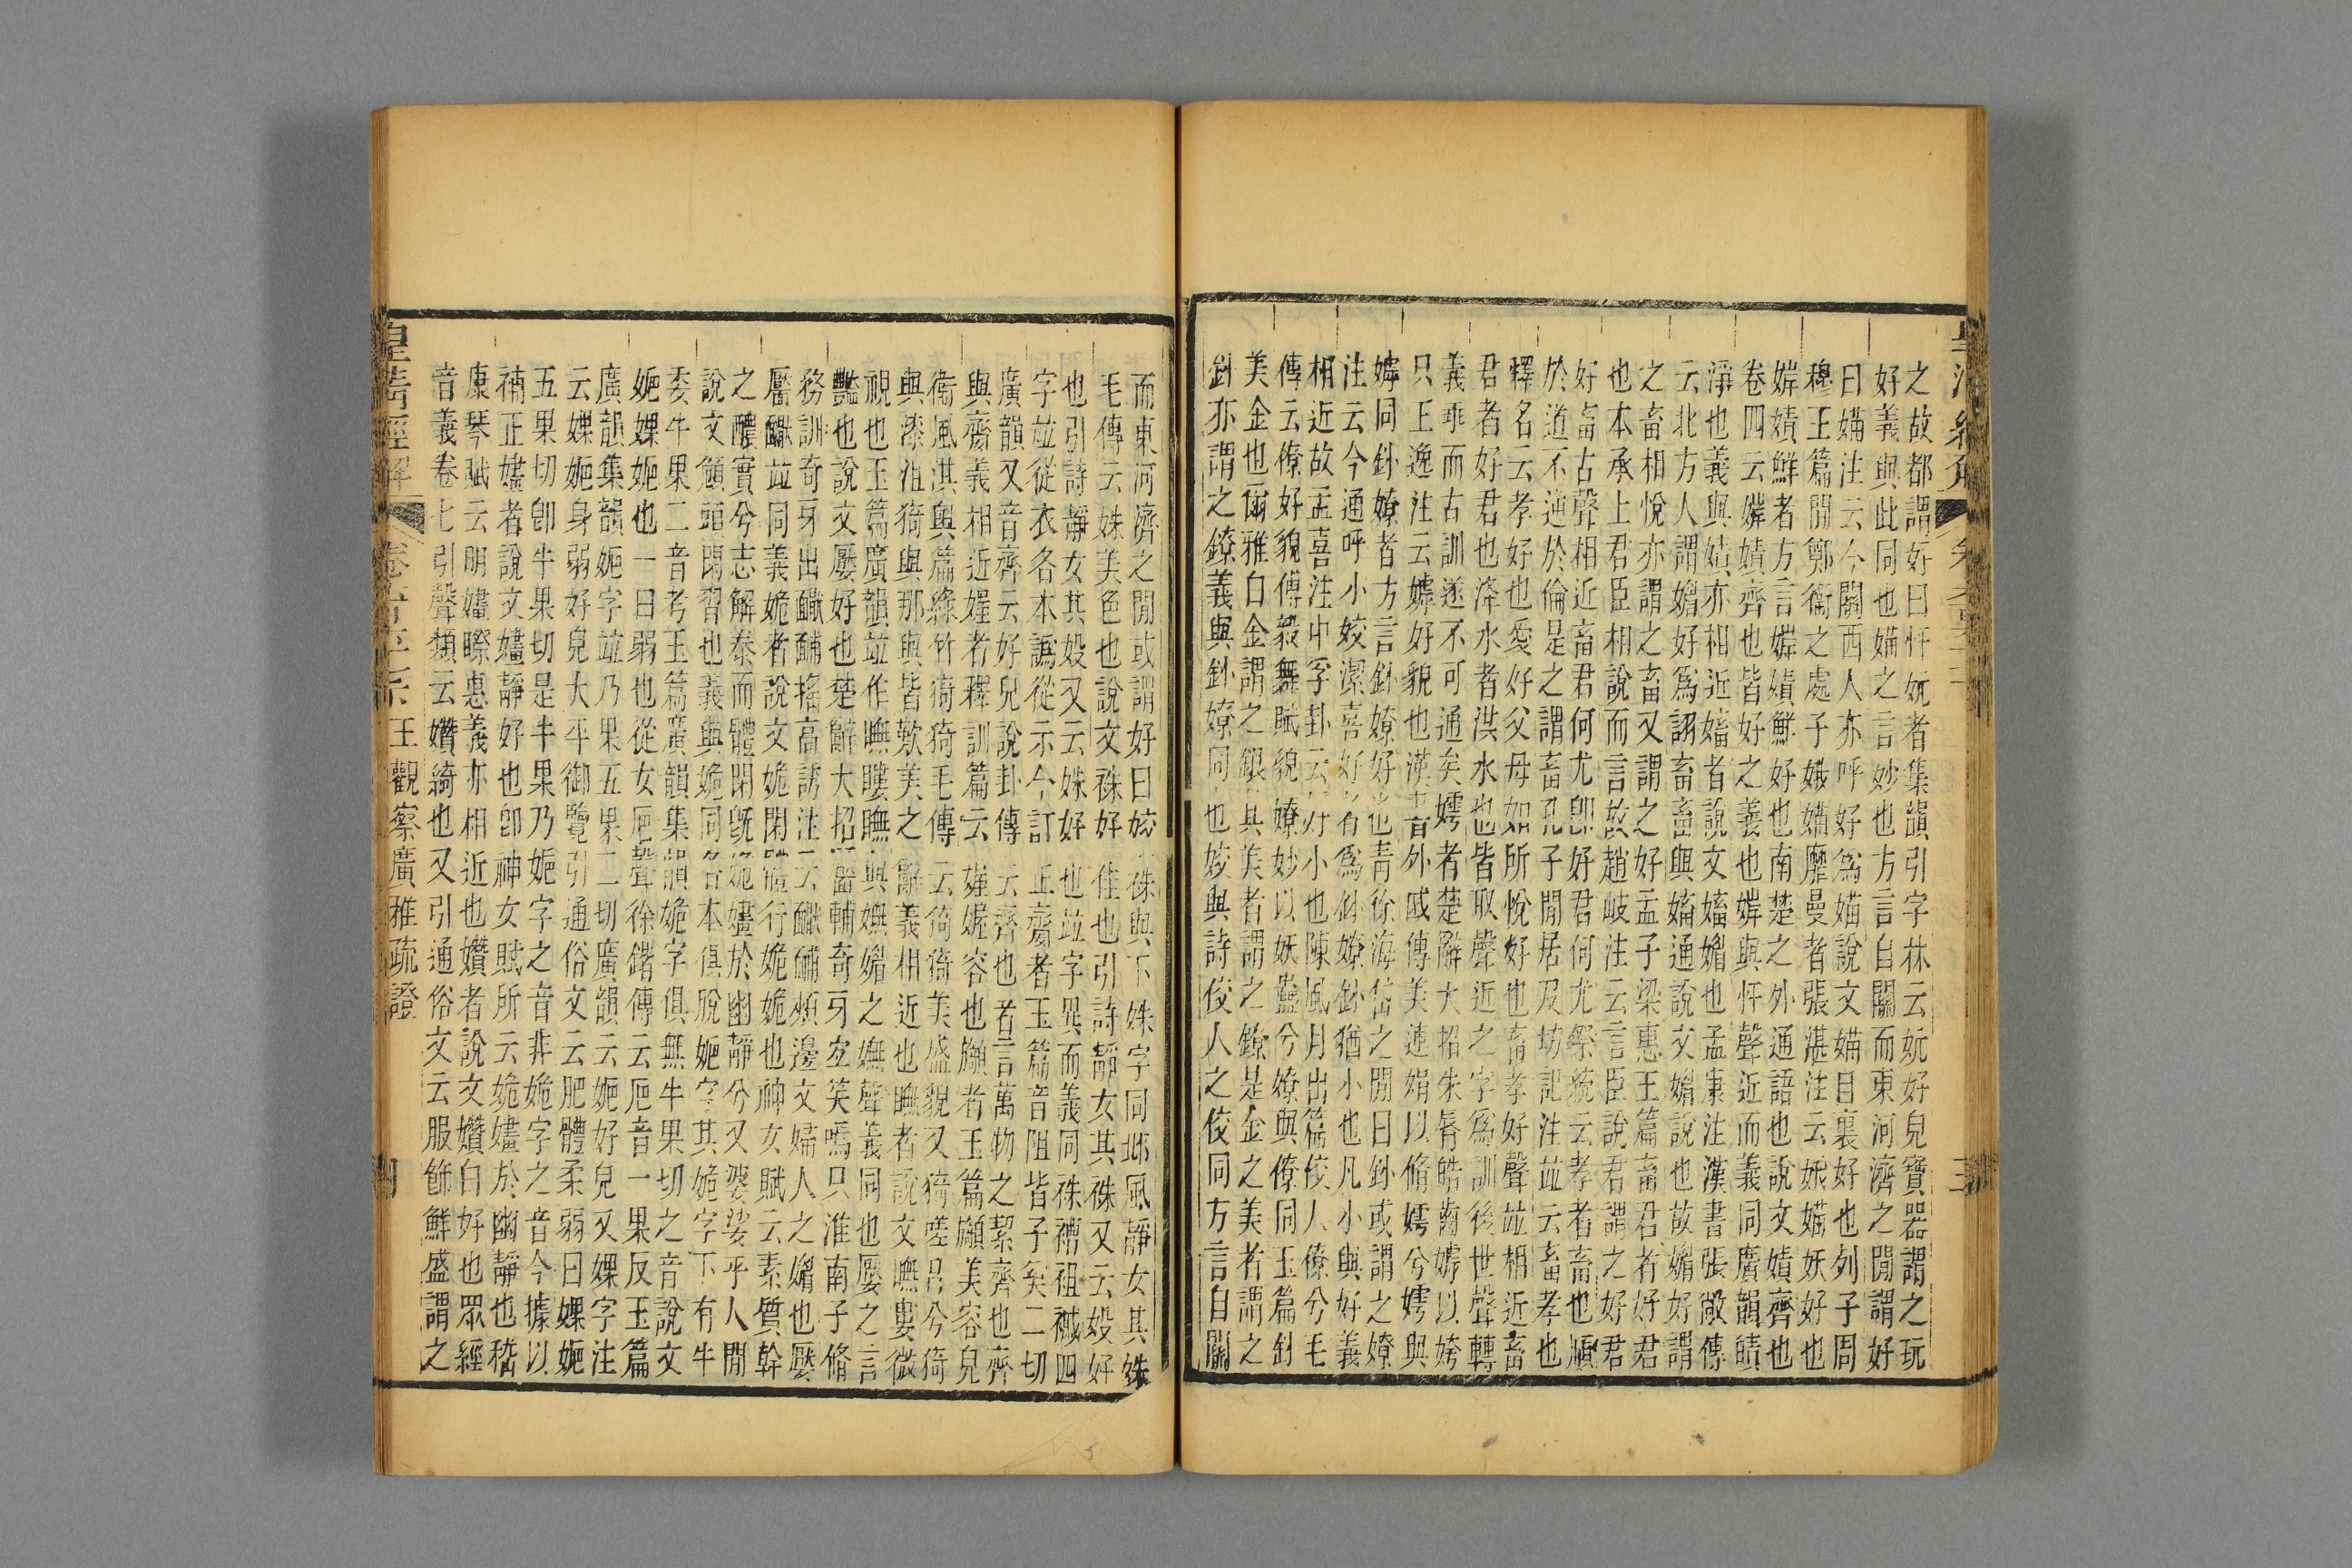 之故都謂好曰忓妧者集韻引字林云妧好皃寶器謂之玩
好義與此同也媌之言妙也方言自關而東河濟之閒謂好
曰媌注云今關西人亦呼好爲媌說文媌目裏好也列子周
穆王篇閒鄭衞之處子娥媌靡曼者張湛注云娥媌妖好也
嫭嫧鮮者方言嫭嫧鮮好也南楚之外通語也說文嫧齊也
卷四云嫾嫧齊也皆好之義也嫭與忓聲近而義同廣韻皟
淨也義與嫧亦相近㜅者說文㜅媚也孟康注漢書張敞傳
云北方人謂媚好爲詡畜畜與㜅通說文媚說也故媚好謂
之畜相悅亦謂之畜又謂之好孟子梁惠王篇畜君者好君
也本承上君臣相說而言故趙岐注云言臣說君謂之好君
好畜古聲相近畜君何尤卽好君何尤祭統云孝者畜也順
於道不逆於倫是之謂畜孔子閒居及坊記注竝云畜孝也
釋名云孝好也愛好父母如所悅好也畜孝好聲竝相近畜
君者好君也洚水者洪水也皆取聲近之字爲訓後世聲轉
義乖而古訓遂不可通矣嫮者楚辭大招朱脣皓齒嫭以姱
只王逸注云嫭好貌也漢書外戚傳美連娟以脩嫮兮嫮與
嫭同釥嫽者方言釥嫽好也青徐海岱之閒曰釥或謂之嫽
注云今通呼小姣潔喜好者爲釥嫽釥猶小也凡小與好義
相近故孟喜注中孚卦云好小也陳風月出篇佼人僚兮毛
傳云僚好貌傅毅舞賦貌嫽妙以妖蠱兮嫽與僚同玉篇釥
美金也爾雅白金謂之銀其美者謂之鐐是金之美者謂之
釥亦謂之鐐義與釥嫽同也姣與詩佼人之佼同方言自關
而東河濟之閒或謂好曰姣袾與下姝字同邶風靜女其姝
毛傳云姝美色也說文袾好佳也引詩靜女其袾又云㚼好
也引詩靜女其㚼又云姝好也竝字異而義同袾禣祖䙘四
字竝從衣各本譌從示今訂正䶒者玉篇音阻皆子矣二切
廣韻又音齊云好皃說卦傳云齊也者言萬物之絜齊也齊
與齌義相近娗者釋訓篇云娗娗容也嬾者玉篇㜵美容皃
衞風淇奧篇綠竹猗猗毛傳云猗猗美盛貌又猗嗟昌兮猗
與漆沮猗與那與皆歎美之辭義相近也瞴者說文瞴婁微
視也玉篇廣韻竝作瞴䁖瞴與嫵媚之嫵聲義同也嬮之言
豔也說文嬮好也楚辭大招靨輔奇牙宜笑嘕只淮南子脩
務訓奇牙出䩉䩉搖高誘注云䩉䩉頰邊文婦人之媚也嬮
靨䩉竝同義姽者說文姽閑體行姽姽也神女賦云素質幹
之醲實兮志解泰而體閑旣姽嫿於幽靜兮又婆娑乎人閒
說文頠頭閑習也義與姽同各本俱脫妮字其姽字下有牛
委牛果二音考玉篇廣韻集韻姽字俱無牛果切之音說文
婐妮也一曰弱也從女厄聲徐鍇傳云厄音一果反玉篇
廣韻集韻妮字竝乃果五果二切廣韻云妮好皃又婐字注
云婐妮身弱好皃大平御覽引通俗文云肥體柔弱曰婐妮
五果切卽牛果切是牛果乃妮字之音非姽字之音今據以
補正嫿者說文嫿靜好也卽神女賦所云姽嫿於幽靜也嵇
康琴賦云明嫿䁽惠義亦相近也嬪者說文嬪白好也眾經
音義卷七引聲類云嬪綺也又引通俗文云服飾鮮盛謂之
皇清經解
王觀察廣雅疏證